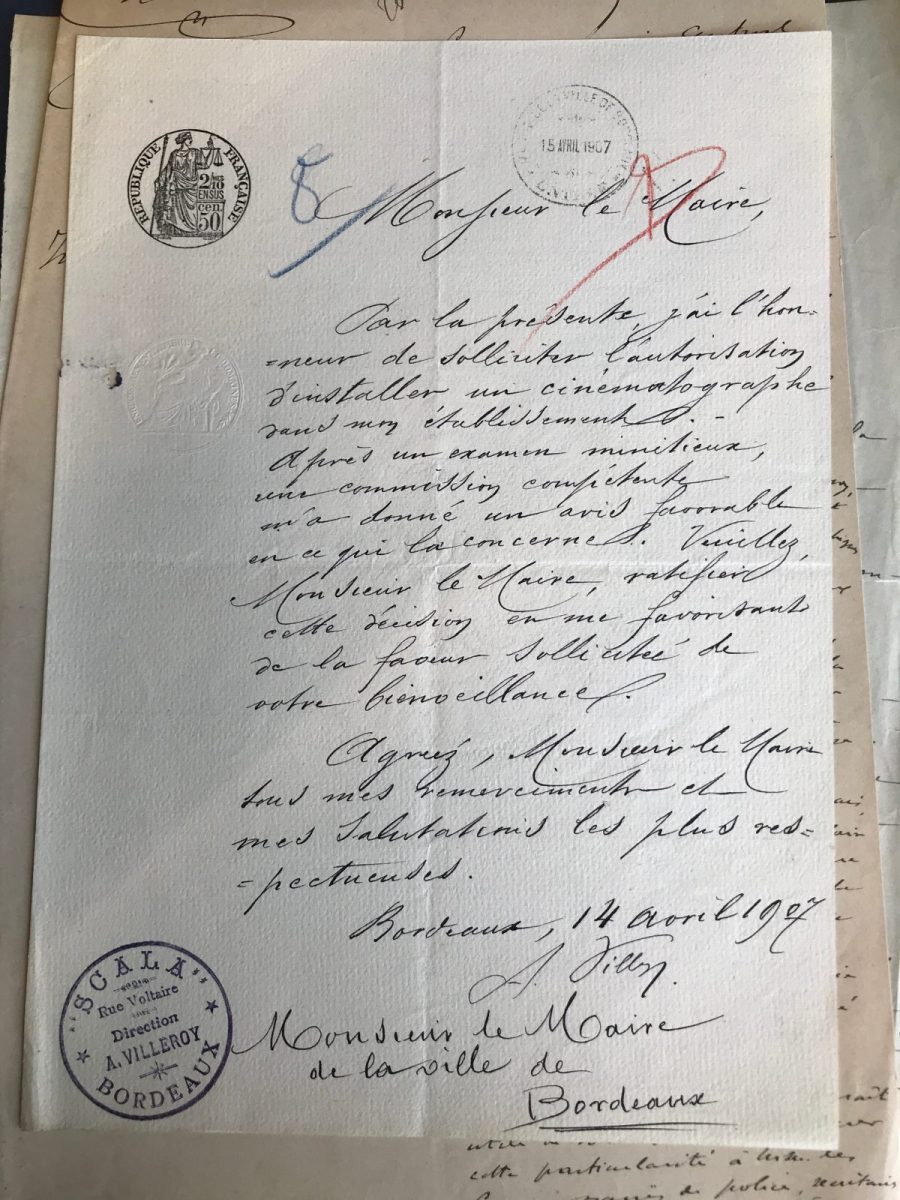 RÉPUBLIQUE FRANÇAISE
2/10
EN SUS
50 cen.
15 AVRIL 1907
8
Monsieur le Maire,
Par la présente, j'ai l'hon-
-neur de solliciter l'autorisation
d'installer un cinématographe
dans mon établissement. -
Après un examen minitieux,
une commission compétente
m'a donné un avis favorable
en ce qui la concerne. Veuillez,
Monsieur le Maire, ratifier
cette décision en me favorisant
de la faveur sollicitée de
votre bienveillance.
Agréez, Monsieur le Maire
tous mes remerciments et
mes salutations les plus res=
=pectueuses.
Bordeaux, 14 avril 1907
A. Villeroy
"SCALA"
Rue Voltaire
Direction
A. VILLEROY
BORDEAUX
Monsieur le Maire
de la ville de
Bordeaux
cette particularité à
de police,